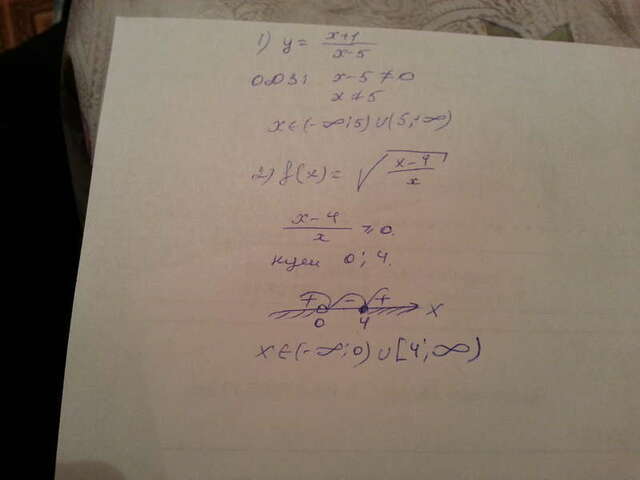 1) y = x+1 / x-5
ООФ: x-5 ≠ 0
x ≠ 5
x ∈ (-∞; 5) ∪ (5; ∞)
2) f(x) = √(x-4 / x)
x-4 / x ≥ 0.
нули 0; 4.
+ - + x
0 4
x ∈ (-∞; 0) ∪ [4; ∞)